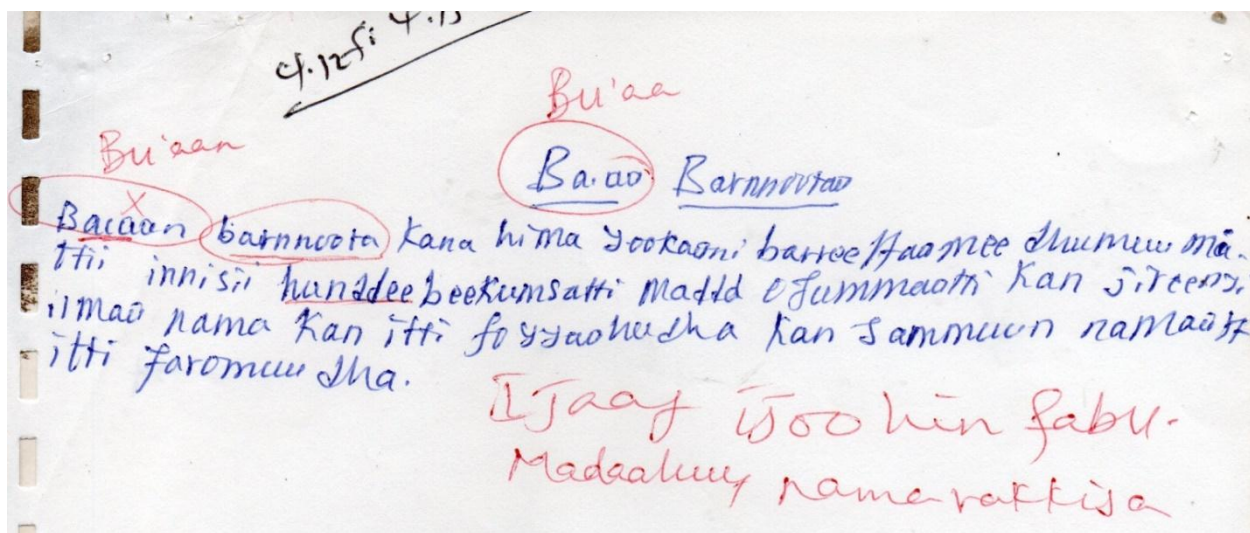 4.12fi 4.13
Bu'aa
Bu'aan
Ba.aa Barnnootaa
Bacaan barnnoota kana hima yookaani barree ffaamee dhumuu ma.
ttii innisii hunddee beekumsatti madd
ilmaa nama kan itti fo yyaahudha kan sammuun namaa
itti faromuu dha.
Ijaaj ijoo hin qabu.
Madaaluuf nama rakkisa